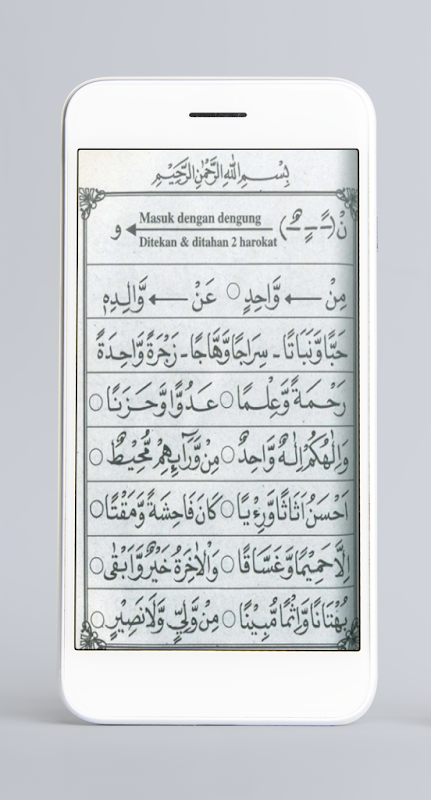 بِسْمِ اللّٰهِ الرَّحْمٰنِ الرَّحِيْمِ
نْ (ـًــٍــٌ) Masuk dengan dengung و
Ditekan & ditahan 2 harokat
مِنْ ← وَّاحِدٍ ○ عَنْ ← وَّالِدِهٖ
حَبًّاوَّنَبَاتًا - سِرَاجًاوَّهَّاجًا - زَجْرَةٌوَّاحِدَةٌ
رَحْمَةًوَّعِلْمًا ○ عَدُوًّاوَّحَزَنًا ○
وَاِلٰهُكُمْ اِلٰهٌ وَّاحِدٌ ○ مِنْ وَّرَآىِٕهِمْ مُّحِيْطٌ ○
اَحْسَنُ اَثَاثًاوَّرِءْيًا ○ كَانَ فَاحِشَةًوَّمَقْتًا ○
اِلَّاحَمِيْمًاوَّغَسَّاقًا ○ وَالْاٰخِرَةُ خَيْرٌوَّاَبْقٰى ○
بُهْتَانًاوَّاِثْمًامُّبِيْنًا ○ مِنْ وَّلِيٍّ وَّلَانَصِيْرٍ ○